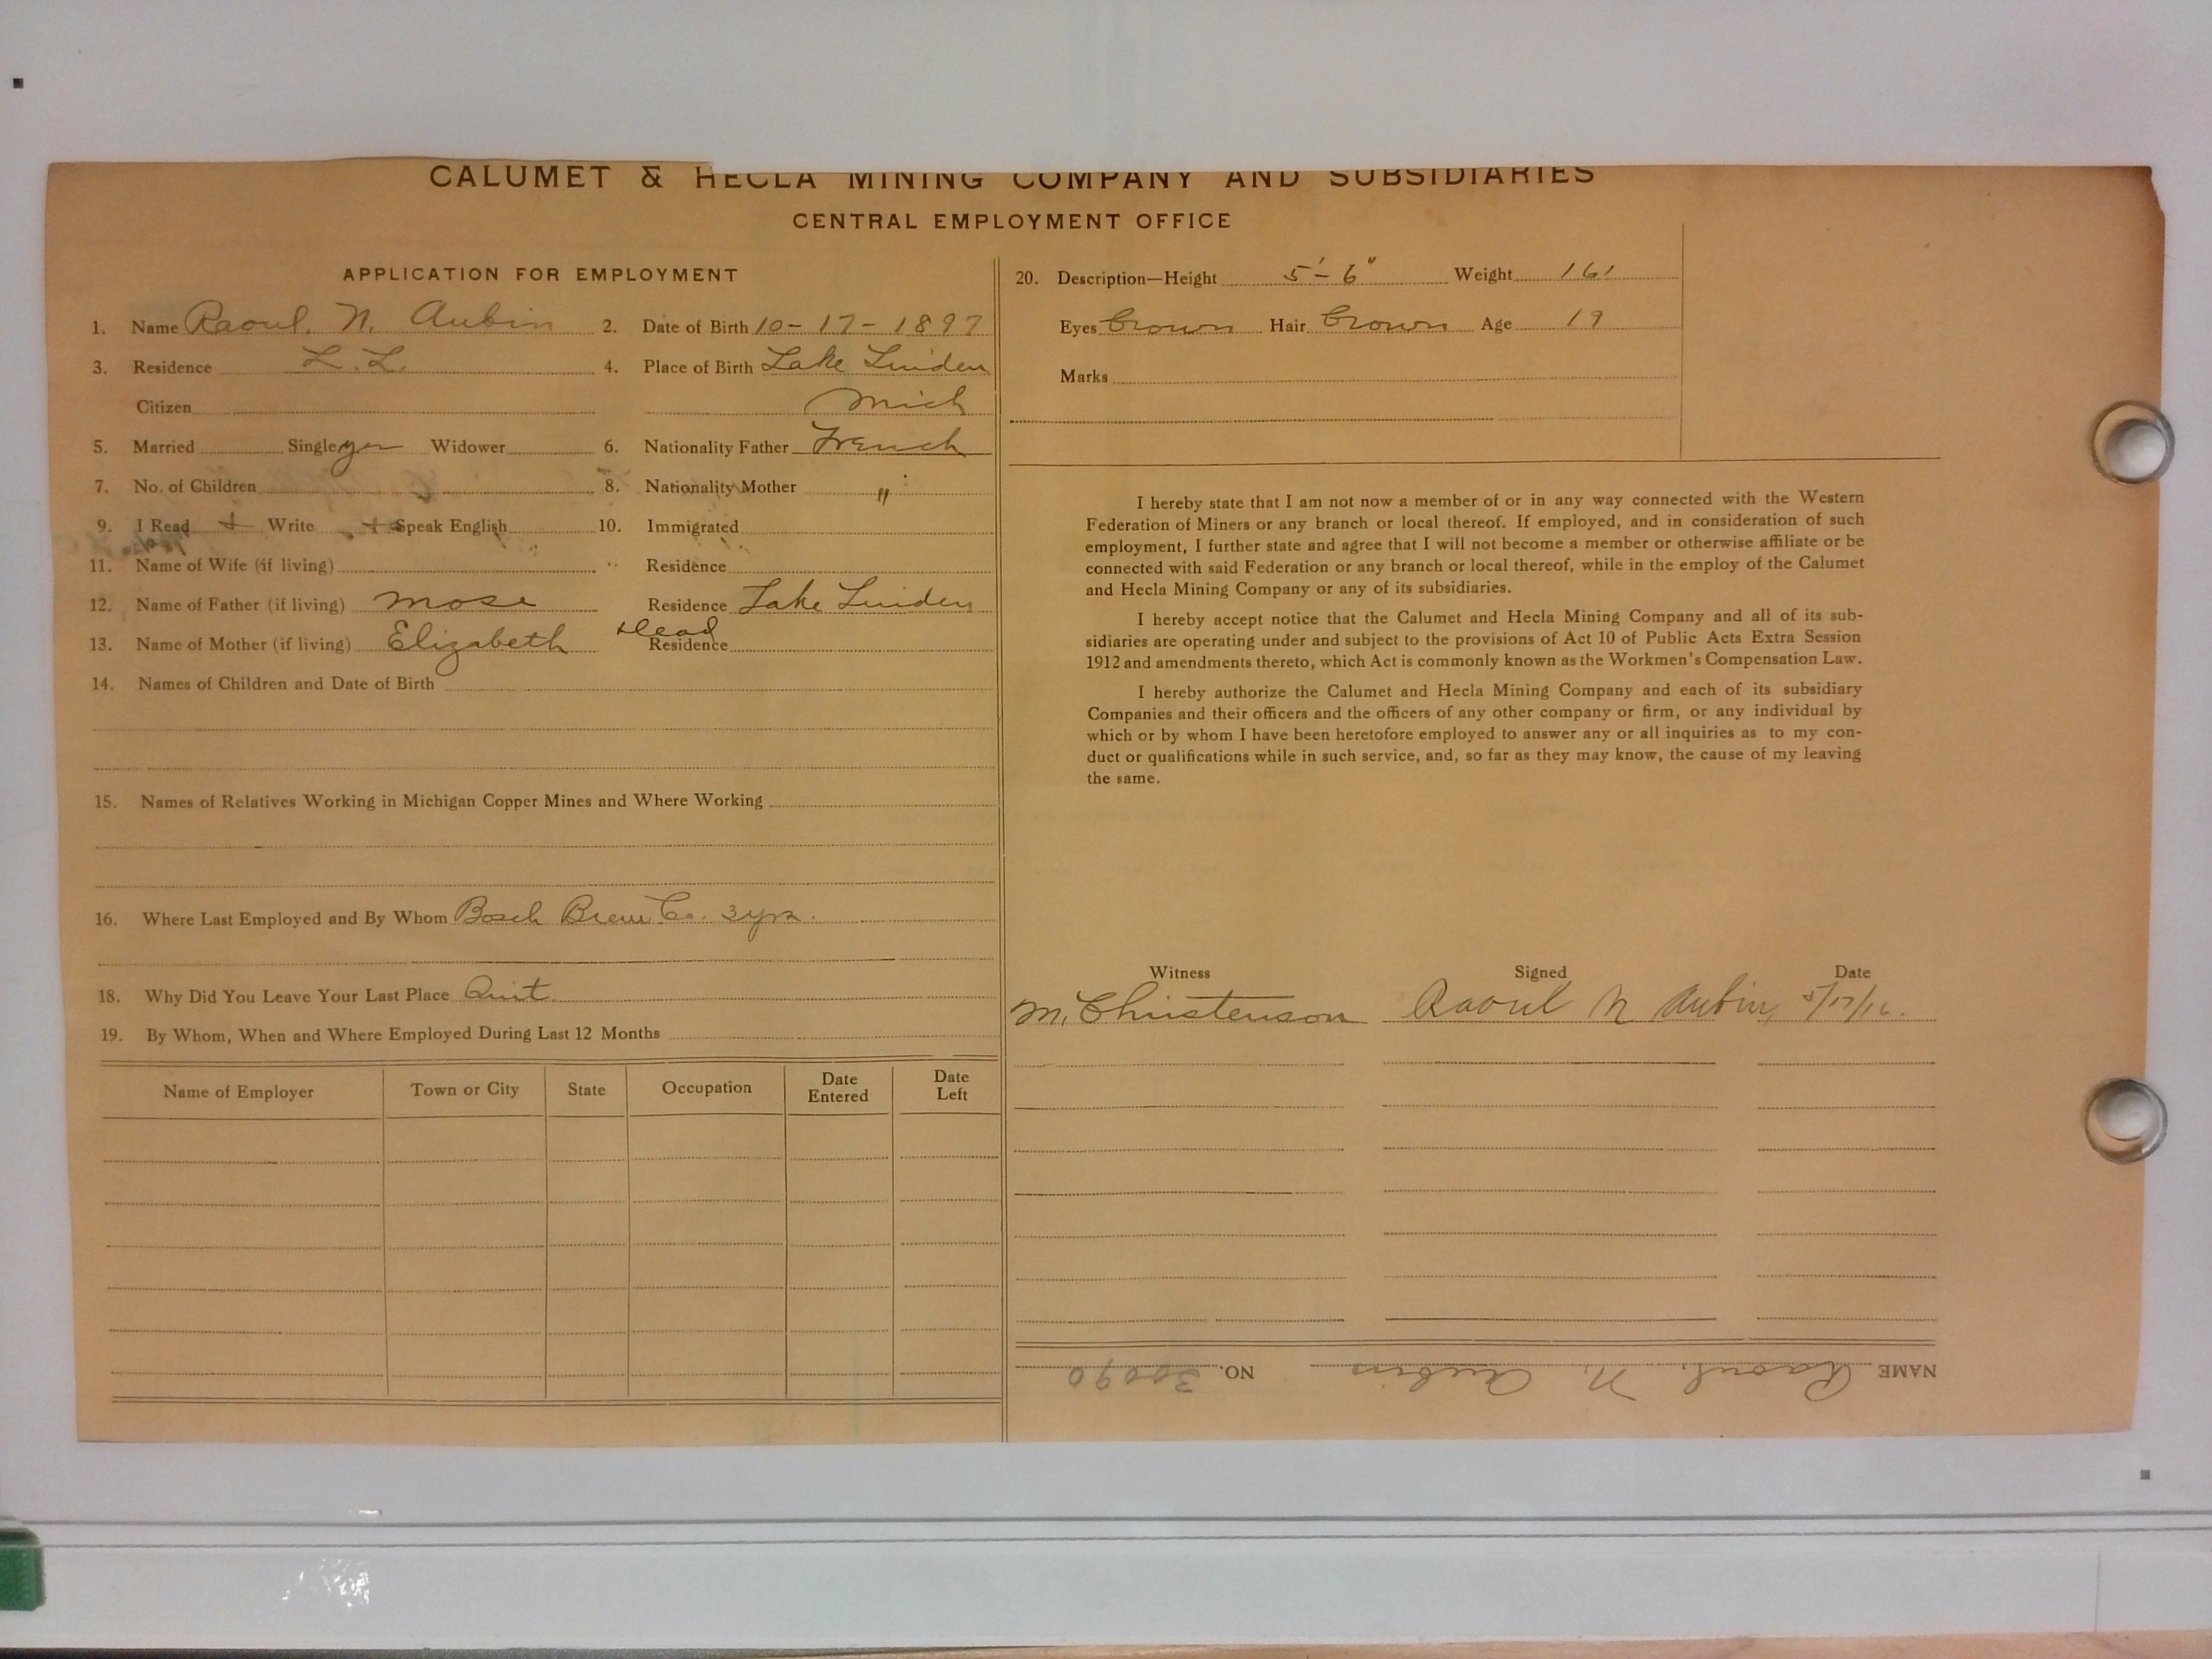 CALUMET & HECLA MINING COMPANY AND SUBSIDIARIES
CENTRAL EMPLOYMENT OFFICE
APPLICATION FOR EMPLOYMENT
1. Name Raoul. N. Aubin 2. Date of Birth 10-17-1897
3. Residence L.L. 4. Place of Birth Lake Linden
Citizen Mich
5. Married Single yes Widower 6. Nationality Father French
7. No. of Children 8. Nationality Mother "
9. I Read + Write + Speak English 10. Immigrated
11. Name of Wife (if living) Residence
12. Name of Father (if living) Mose Residence Lake Linden
13. Name of Mother (if living) Elizabeth Dead Residence
14. Names of Children and Date of Birth
15. Names of Relatives Working in Michigan Copper Mines and Where Working
16. Where Last Employed and By Whom Bosch Brew Co. 3 yrs.
18. Why Did You Leave Your Last Place Quit
19. By Whom, When and Where Employed During Last 12 Months
Name of Employer Town or City State Occupation Date Entered Date Left
20. Description—Height 5'-6" Weight 161
Eyes Brown Hair Brown Age 19
Marks
I hereby state that I am not now a member of or in any way connected with the Western
Federation of Miners or any branch or local thereof. If employed, and in consideration of such
employment, I further state and agree that I will not become a member or otherwise affiliate or be
connected with said Federation or any branch or local thereof, while in the employ of the Calumet
and Hecla Mining Company or any of its subsidiaries.
I hereby accept notice that the Calumet and Hecla Mining Company and all of its sub-
sidiaries are operating under and subject to the provisions of Act 10 of Public Acts Extra Session
1912 and amendments thereto, which Act is commonly known as the Workmen's Compensation Law.
I hereby authorize the Calumet and Hecla Mining Company and each of its subsidiary
Companies and their officers and the officers of any other company or firm, or any individual by
which or by whom I have been heretofore employed to answer any or all inquiries as to my con-
duct or qualifications while in such service, and, so far as they may know, the cause of my leaving
the same.
Witness Signed Date
M. Christenson Raoul N Aubin, 5/17/16.
NAME Raoul. N. Aubin NO. 30090